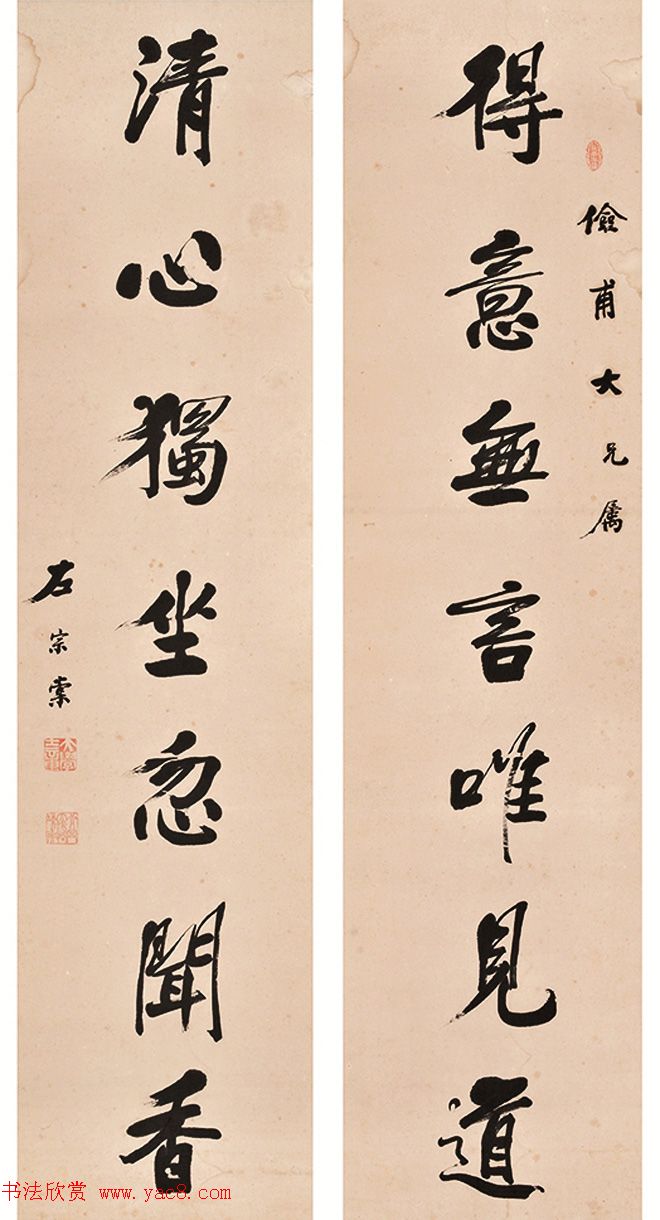 儉甫大兄属
得意無言唯見道
清心獨坐忽聞香
左宗棠
书法欣赏 www.yac8.com